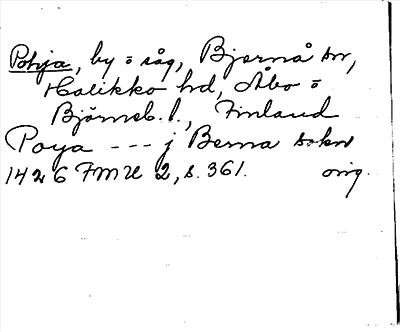 Pohja, by o såg, Bjernå sn,
Halikko hd, Åbo o
Björneb. l., Finland
Poya --- j Berna sokn
1426 FMU 2, s. 361. orig.